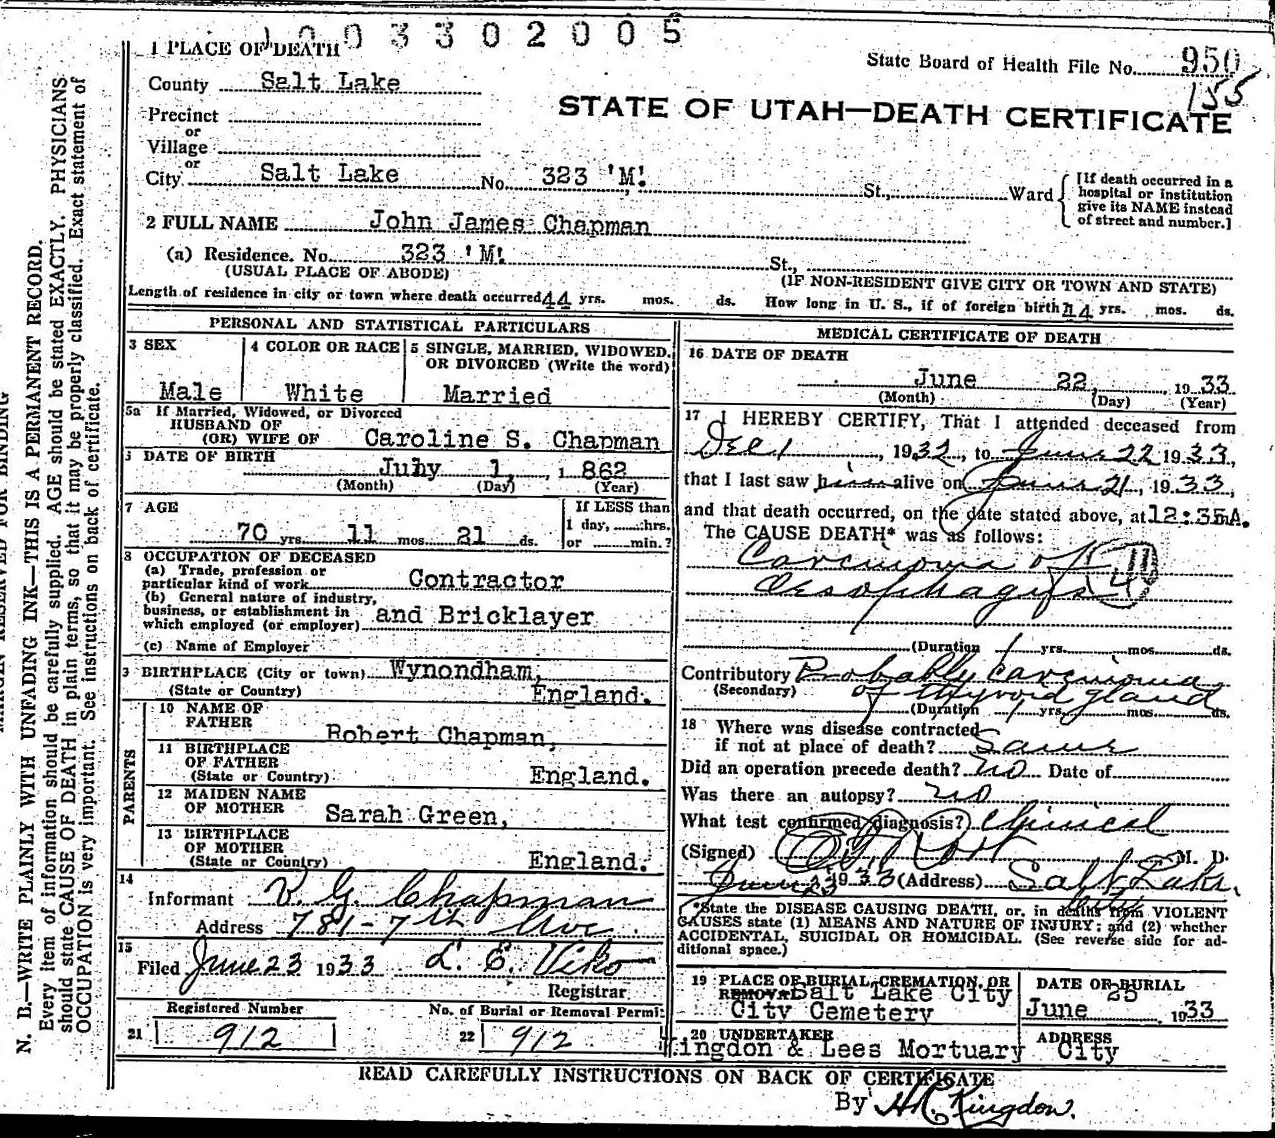 1003302005
1 PLACE OF DEATH
State Board of Health File No. 950
155
County Salt Lake
STATE OF UTAH—DEATH CERTIFICATE
Precinct
or
Village
or
City Salt Lake No. 323 'M! St., Ward
[If death occurred in a
hospital or institution
give its NAME instead
of street and number.]
2 FULL NAME John James Chapman
(a) Residence. No. 323 'M! St.,
(USUAL PLACE OF ABODE) (IF NON-RESIDENT GIVE CITY OR TOWN AND STATE)
Length of residence in city or town where death occurred 44 yrs. mos. ds. How long in U. S., if of foreign birth 44 yrs. mos. ds.
PERSONAL AND STATISTICAL PARTICULARS
3 SEX
Male
4 COLOR OR RACE
White
5 SINGLE, MARRIED, WIDOWED,
OR DIVORCED (Write the word)
Married
5a If Married, Widowed, or Divorced
HUSBAND OF
(OR) WIFE OF Caroline S. Chapman
DATE OF BIRTH
July 1, 1862
(Month) (Day) (Year)
7 AGE
70 yrs. 11 mos. 21 ds.
If LESS than
1 day, hrs.
or min.?
8 OCCUPATION OF DECEASED
(a) Trade, profession or
particular kind of work Contractor
(b) General nature of industry,
business, or establishment in
which employed (or employer) and Bricklayer
(c) Name of Employer
9 BIRTHPLACE (City or town) Wynondham,
(State or Country) England.
PARENTS
10 NAME OF
FATHER Robert Chapman,
11 BIRTHPLACE
OF FATHER
(State or Country) England.
12 MAIDEN NAME
OF MOTHER Sarah Green,
13 BIRTHPLACE
OF MOTHER
(State or Country) England.
14
Informant V. G. Chapman
Address 781-7th Ave.
15
Filed June 23 1933 L. E. Viko
Registrar
Registered Number
21 912
No. of Burial or Removal Permit
22 912
MEDICAL CERTIFICATE OF DEATH
16 DATE OF DEATH
June 22, 1933
(Month) (Day) (Year)
17 I HEREBY CERTIFY, That I attended deceased from
Dec 1, 1932, to June 22 1933,
that I last saw him alive on June 21, 1933,
and that death occurred, on the date stated above, at 12:35A m.
The CAUSE DEATH* was as follows:
Carcinoma of
Oesophagus
(Duration 1 yrs. mos. ds.
Contributory Probably carcinoma
(Secondary) of thyroid gland
(Duration 1 yrs. mos. ds.
18 Where was disease contracted
if not at place of death? Same
Did an operation precede death? no Date of
Was there an autopsy? no
What test confirmed diagnosis? Clinical
(Signed) M. D.
June 23 1933 (Address) Salt Lake
City
*State the DISEASE CAUSING DEATH, or, in deaths from VIOLENT
CAUSES state (1) MEANS AND NATURE OF INJURY; and (2) whether
ACCIDENTAL, SUICIDAL OR HOMICIDAL. (See reverse side for ad-
ditional space.)
19 PLACE OF BURIAL, CREMATION, OR
REMOVAL Salt Lake City
City Cemetery
DATE OF BURIAL
June 25 1933
20 UNDERTAKER
ingdon & Lees Mortuary
ADDRESS
City
READ CAREFULLY INSTRUCTIONS ON BACK OF CERTIFICATE
By H.C. Kingdon.
MARGIN RESERVED FOR BINDING
N. B.—WRITE PLAINLY WITH UNFADING INK—THIS IS A PERMANENT RECORD.
Every item of information should be carefully supplied. AGE should be stated EXACTLY. PHYSICIANS
should state CAUSE OF DEATH in plain terms, so that it may be properly classified. Exact statement of
OCCUPATION is very important. See instructions on back of certificate.